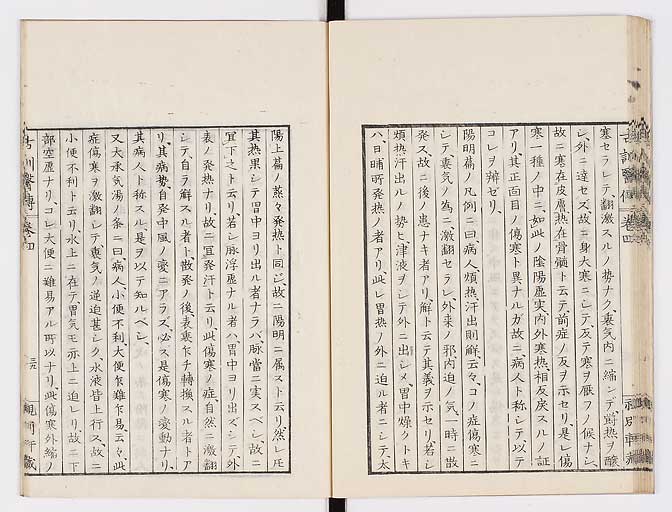 塞セラレテ、翻激スルノ勢ナク裏気内ニ縮シテ、欝熱ヲ醸
シ、外ニ達セズ、故ニ身大寒ニシテ、反テ寒ヲ厭フノ候ナシ、
故ニ寒在皮膚、熱在骨髄ト云テ、前症ノ反ヲ示セリ、是レ傷
寒一種ノ中ニ、如此ノ陰陽虚実、内外寒熱、相反戻スルノ証
アリ、其正面目ノ傷寒ト異ナルガ故ニ、病人ト称シテ、以テ
コレヲ辨セリ、
陽明篇ノ凡例ニ曰、病人煩熱、汗出則解云々、コノ症傷寒ニ
シテ裏気ノ為ニ激翻セラレ、外来ノ邪、内迫ノ気、一時ニ散
発ス、故ニ後ノ患ナキ者アリ、解ト云テ其義ヲ示セリ、若シ
煩熱汗出ルノ勢ヒ、津液ヲシテ外ニ出シメ、胃中燥クトキ
ハ、日晡所発熱ノ者アリ、此レ胃熱ノ外ニ迫ル者ニシテ、太
古訓醫傳 巻四
陽上篇ノ蒸々発熱ト同ジ、故ニ陽明ニ属スト云リ、然レ𪜈
其熱果シテ胃中ヨリ出ル者ナラバ、脉當ニ実スベシ、故ニ
宜下之ト云リ、若シ脉浮虚ナル者ハ、胃中ヨリ出ズシテ、外
表ノ発熱ナリ、故ニ宜発汗ト云リ、此傷寒ノ症、自然ニ激翻
シテ、自ラ解スル者ト、散発ノ後、表裏乍チ轉換スル者トア
リ、其病勢、自発中風ノ変ニアラズ、必ス是傷寒ノ変動ナリ、
其病人ト称スル、是ヲ以テ知ルベシ、
又大承気湯ノ条ニ曰、病人小便不利、大便乍難乍易、云々、此
症傷寒ヲ激翻シテ、裏気ノ逆迫甚シク、水液皆上行ス、故ニ
小便不利ト云リ、水上ニ在テ、胃気モ亦上ニ迫レリ、故ニ下
部空虚ナリ、コレ大便ニ難易アル所以ナリ、此傷寒外縮ノ